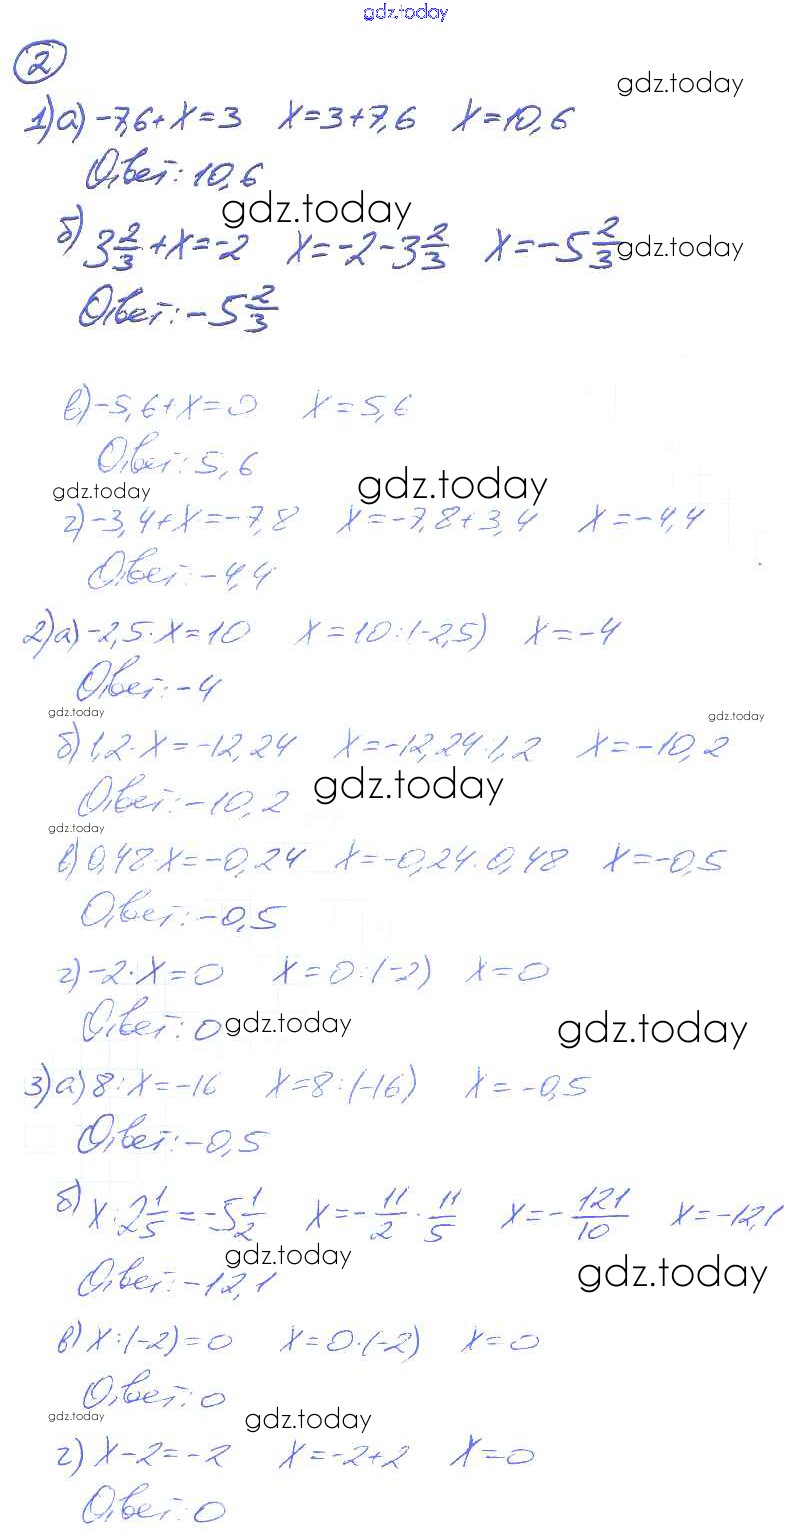 gdz.today
2
gdz.today
1) а) -7,6+x=3 x=3+7,6 x=10,6
Ответ: 10,6
gdz.today
б) 3 2/3 +x=-2 x=-2-3 2/3 x=-5 2/3 gdz.today
Ответ: -5 2/3
в) -5,6+x=0 x=5,6
Ответ: 5,6
gdz.today gdz.today
г) -3,4+x=-7,8 x=-7,8+3,4 x=-4,4
Ответ: -4,4
2) а) -2,5·x=10 x=10:(-2,5) x=-4
Ответ: -4
gdz.today gdz.today
б) 1,2·x=-12,24 x=-12,24:1,2 x=-10,2
Ответ: -10,2 gdz.today
gdz.today
в) 0,48·x=-0,24 x=-0,24:0,48 x=-0,5
Ответ: -0,5
г) -2·x=0 x=0:(-2) x=0
Ответ: 0 gdz.today gdz.today
3) а) 8:x=-16 x=8:(-16) x=-0,5
Ответ: -0,5
б) x:2 1/5=-5 1/2 x=-11/2·11/5 x=-121/10 x=-12,1
gdz.today gdz.today
Ответ: -12,1
в) x:(-2)=0 x=0·(-2) x=0
Ответ: 0
gdz.today gdz.today
г) x-2=-2 x=-2+2 x=0
Ответ: 0